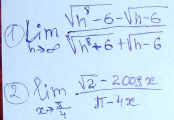 ① lim n→∞ (√(n⁸-6) - √(n-6)) / (√(n⁸+6) + √(n-6))
② lim x→π/4 (√2 - 2cosx) / (π-4x)